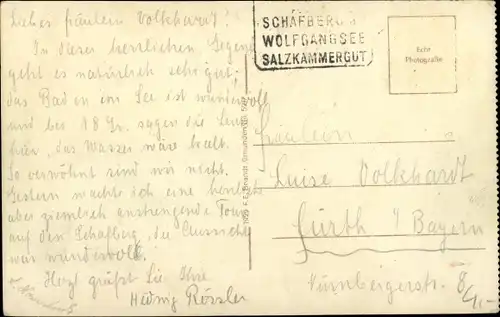 Liebes Fräulein Volkhardt!
In dieser herrlichen Gegend
geht es natürlich sehr gut;
das Baden im See ist wundervoll
und bei 18 Gr. sagen die Leute
hier „das Wasser wäre kalt.
So verwöhnt sind wir nicht.
Gestern machte ich eine herrliche
aber ziemlich anstrengende Tour
auf den Schafberg, die Aussicht
war wundervoll.
Herzl. grüßt Sie Ihre
Hedwig Rössler
SCHAFBERG
WOLFGANGSEE
SALZKAMMERGUT
Echt
Photografie
Brandt, Gmunden
Fräulein
Luise Volkhardt
Fürth i/Bayern
Nürnbergerstr. 8/